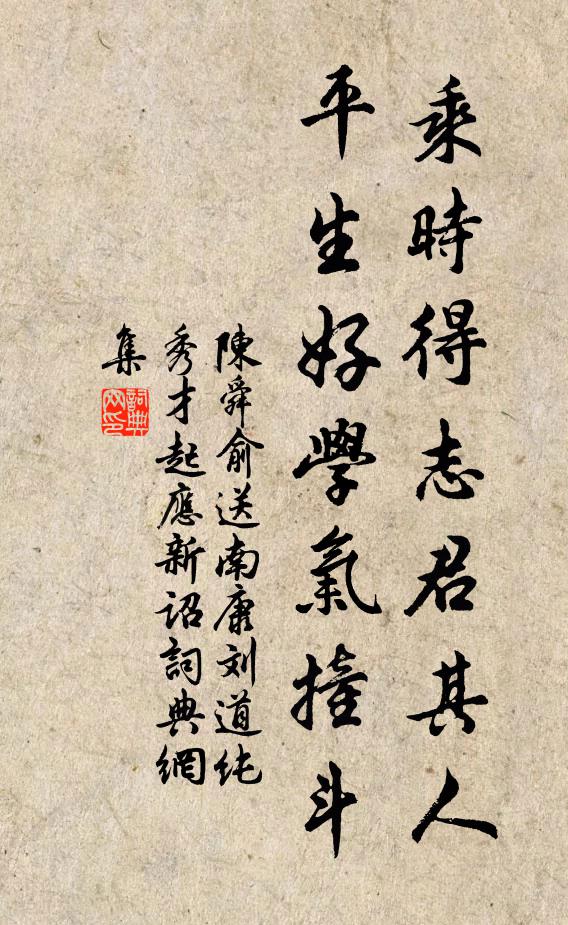 乘時得志君其人
平生好學氣撞斗
陳舜俞送南康刘道純
秀才起應新詔詞典網
集
詞典
网印